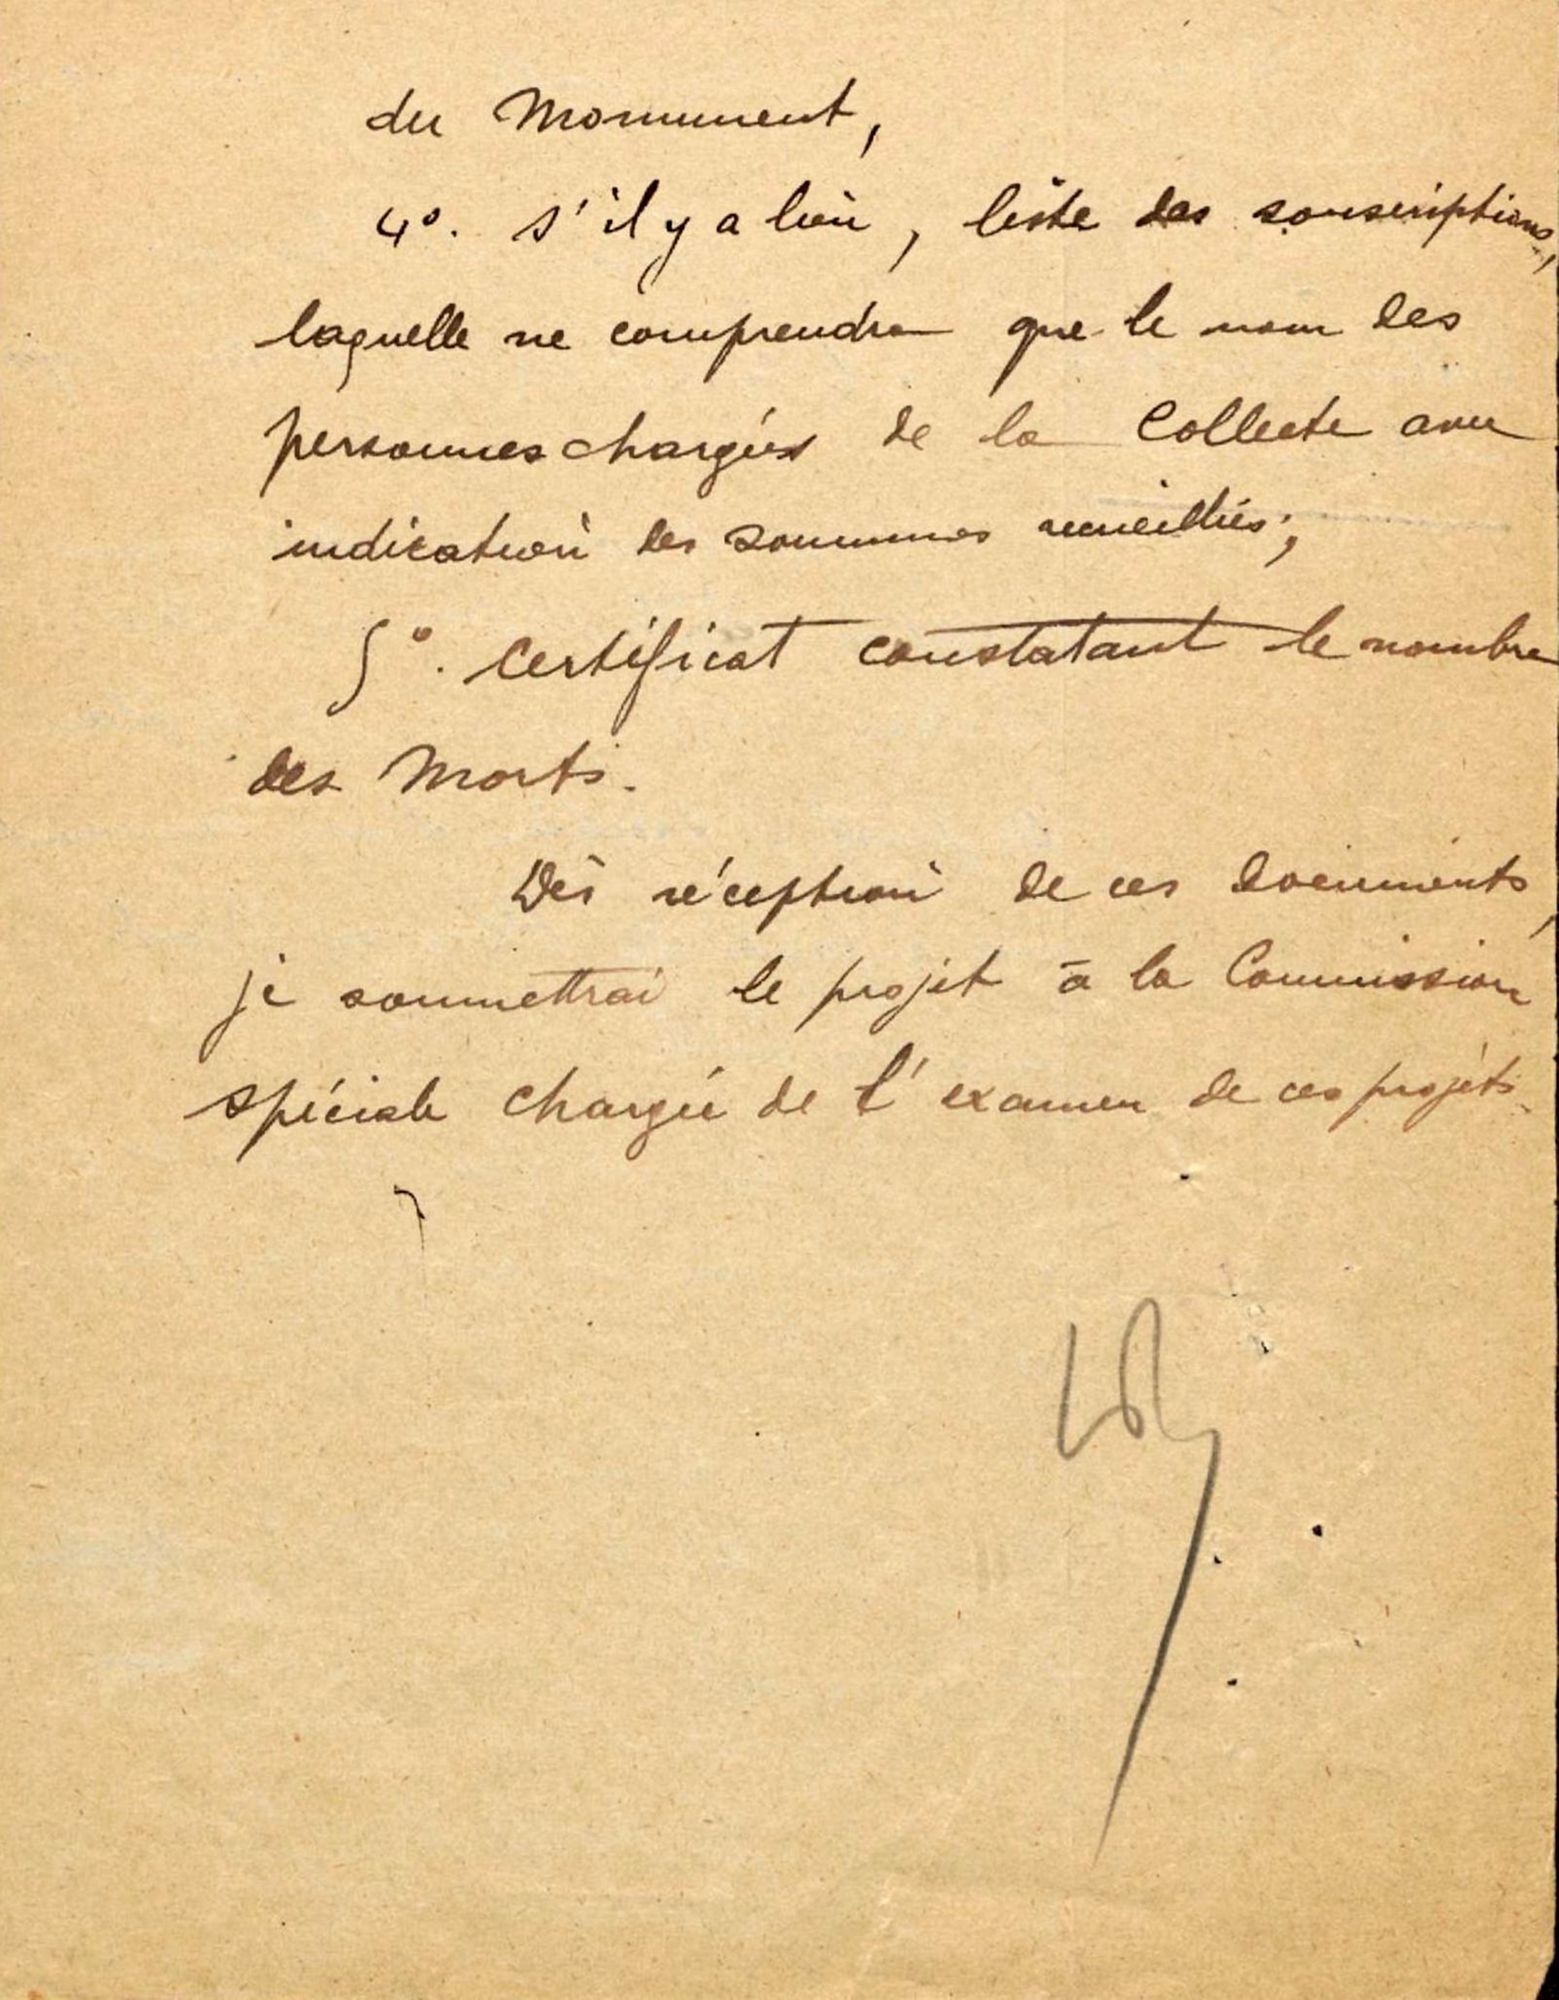 du Monument,
4°. s'il y a lieu, liste des souscriptions,
laquelle ne comprendra que le nom des
personnes chargées de la Collecte avec
indication des sommes recueillies;
5°. Certificat constatant le nombre
des Morts.
Dès réception de ces documents,
je soumettrai le projet à la Commission
spéciale chargée de l'examen de ces projets.